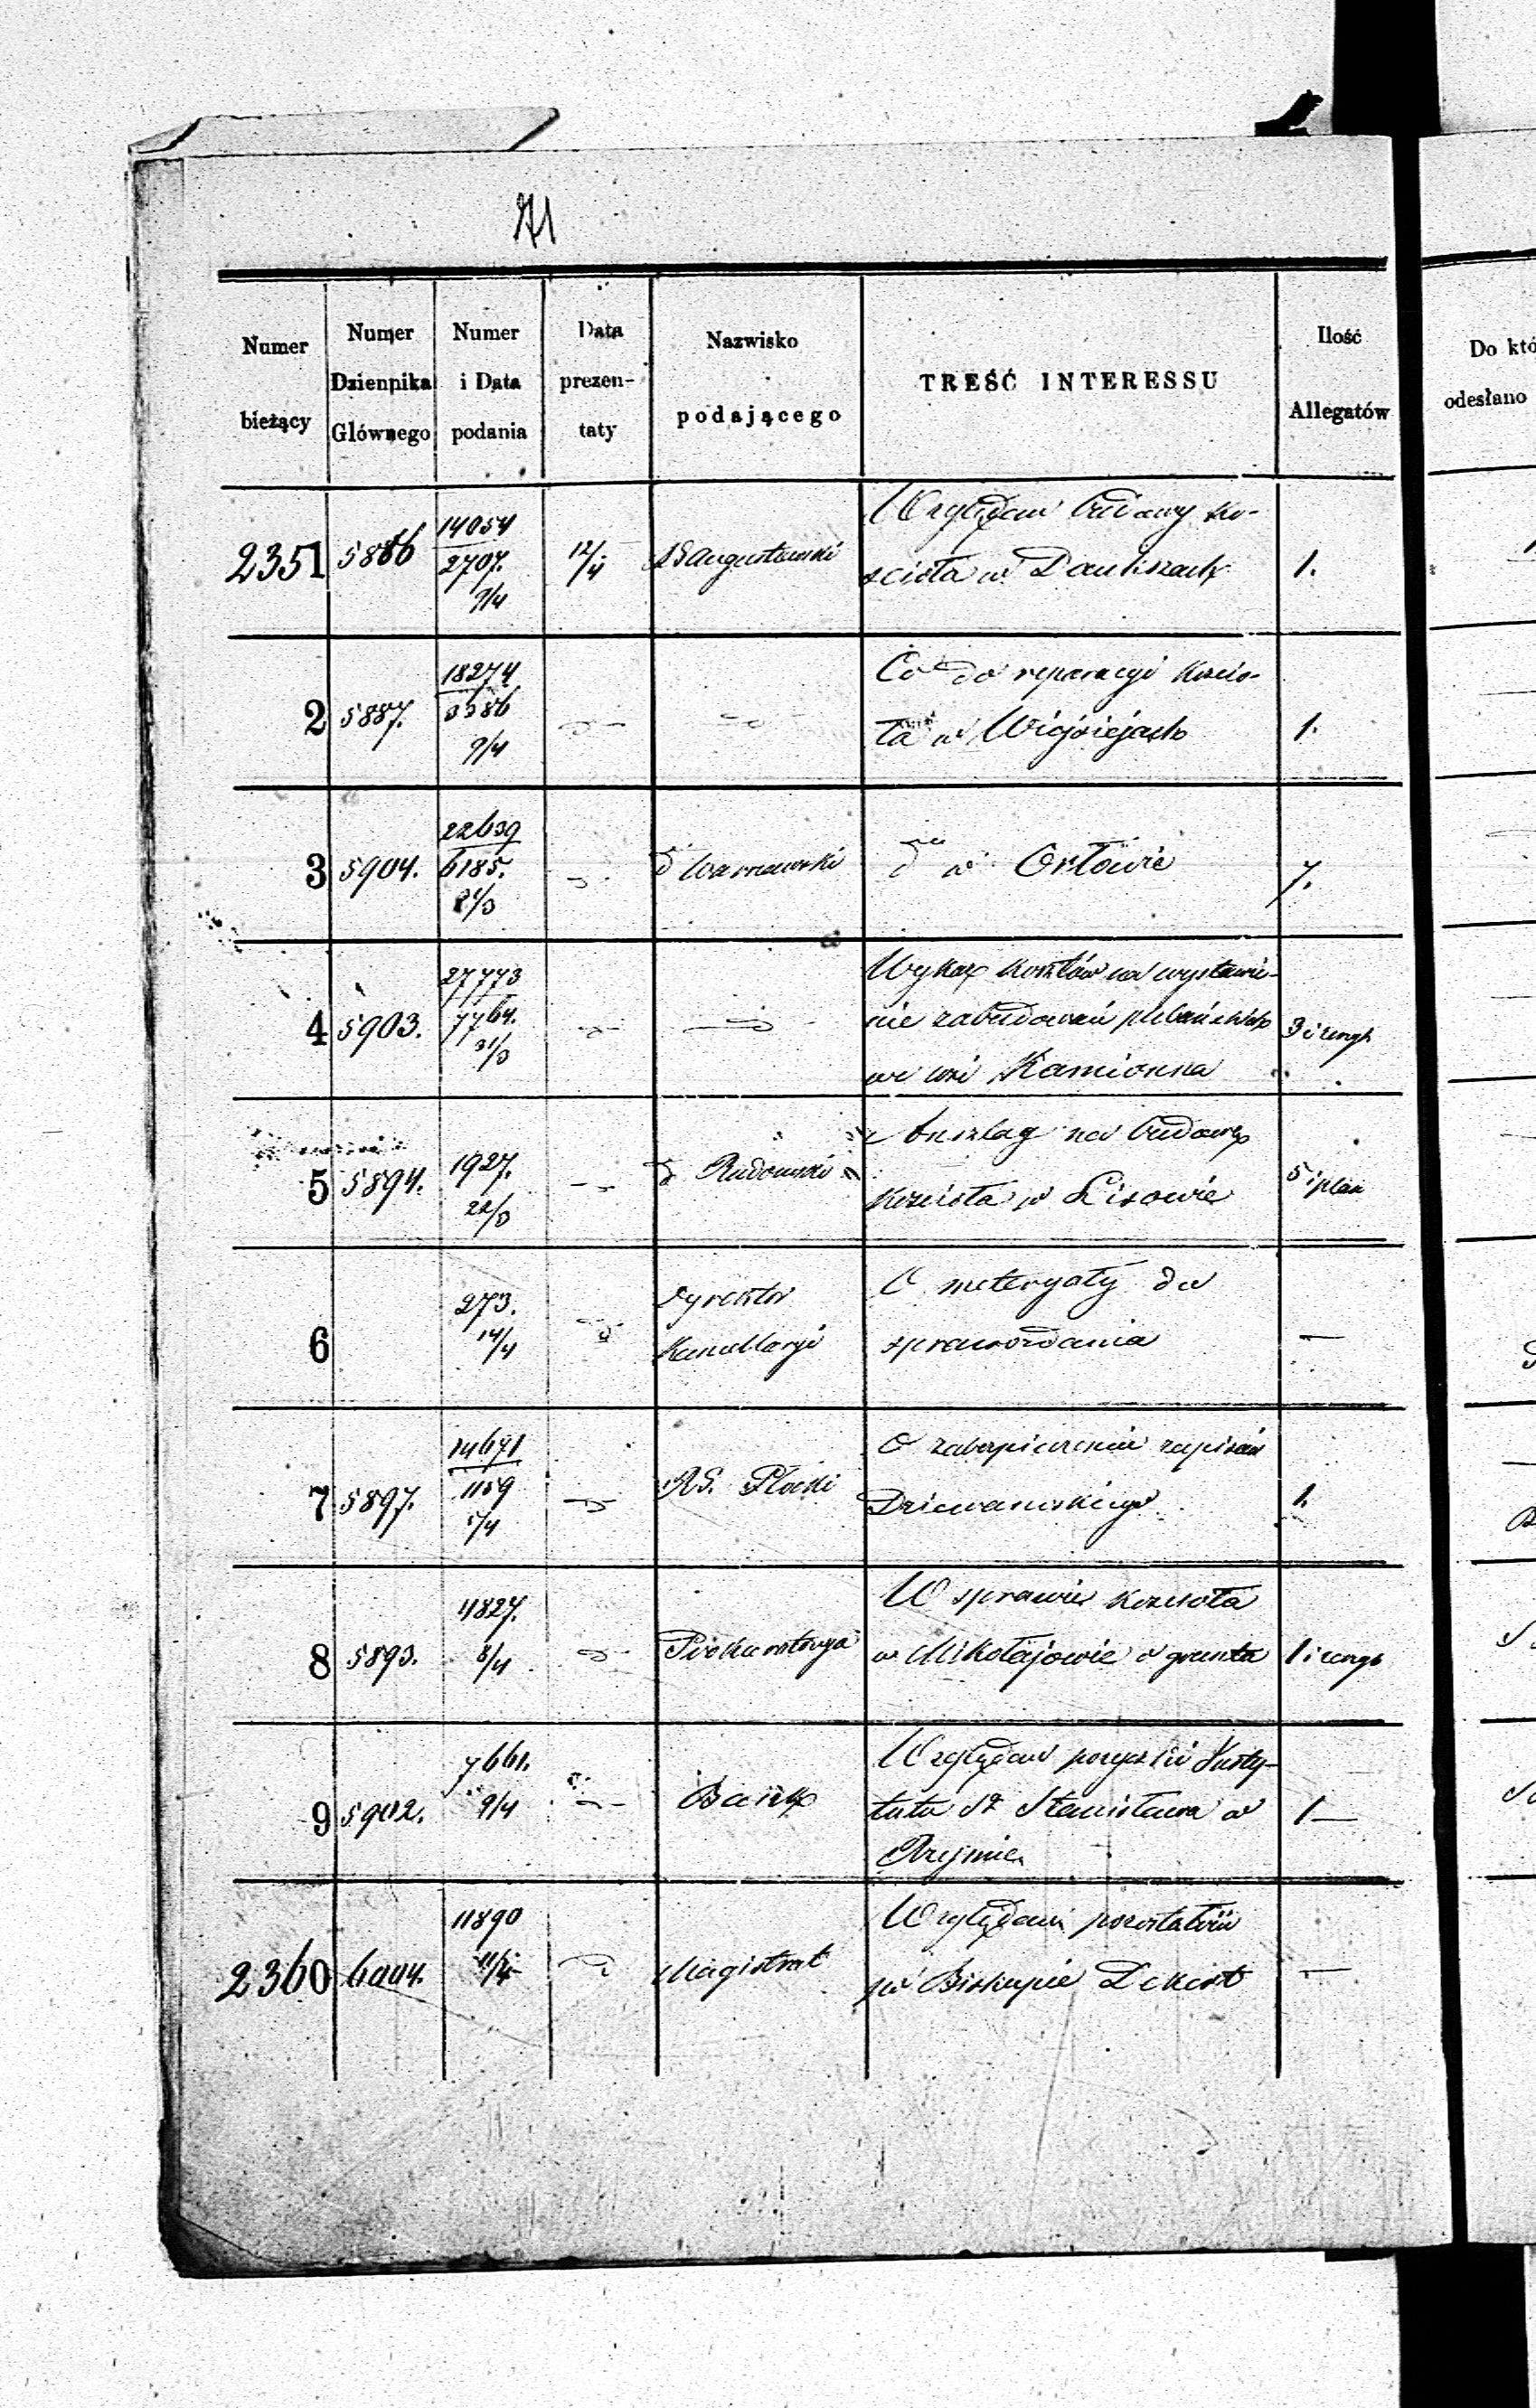 71
Numer bieżący
Numer Dziennika Głównego
Numer i Data podania
Data prezen- taty
Nazwisko podającego
TREŚĆ INTERESSU
Ilość Allegatów
Do któ
odesłano
2351 5886 14054 2707. 9/4 12/4 RGAugustowski
Względem budowy ko-
ścioła w 1.
2 5887. 18274 3386 9/4
Co do reparacyi kościo-
ła w Wiejsiejach 1.
3 5904. 22639 6185. 21/3 d Warszawski
d w Orłowie 7.
4 5903. 27773 7764. 31/3
Wykaz kosztów na wystawie-
nie zabudowań plebańskich 3 i
we wsi Kamionna
5 5894. 1927. 22/3 d Radomski
Anszlag na budowę
kościoła w Lisowie 5 i plan
6 273. 14/4 Dyrektor Kancellaryi
O materyały do
sprawozdania —
7 5897. 14671 1159 5/4 RG. Płocki
O zabezpieczenie zapisów
Dziewanowskiego 1.
8 5893. 4827. 8/4 Prokuratorya
W sprawie kościoła
w Mikołajowie o grunta 1 i
9 5902. 7661. 9/4 Bank
Względem pożyczki Insty-
tutu St Stanisława w 1 —
Rzymie
2360 6004. 11890 11/4 d Magistrat
Względem pozostałości
po Biskupie Dekert —